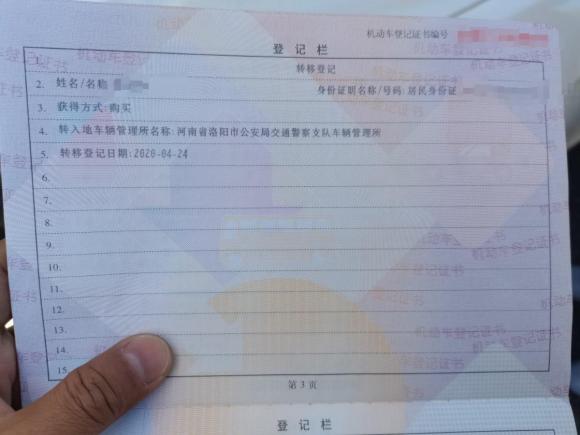 机动车登记证书编号
登记栏
1. 转移登记
2. 姓名/名称 身份证明名称/号码:居民身份证
3. 获得方式:购买
4. 转入地车辆管理所名称:河南省洛阳市公安局交通警察支队车辆管理所
5. 转移登记日期:2020-04-24
6.
7.
8.
9.
10.
11.
12.
13.
14.
15.
第3页
登记栏